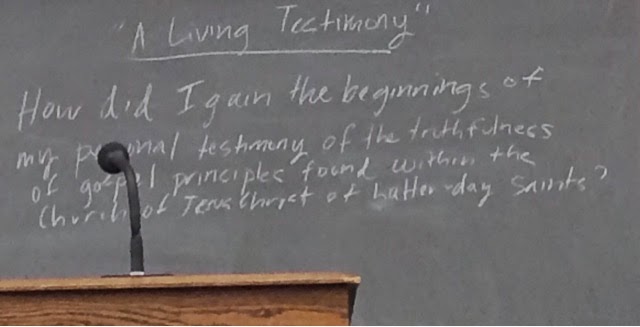 "A Living Testimony"
How did I gain the beginnings of
my personal testimony of the truthfulness
of gospel principles found within the
Church of Jesus Christ of Latter-day Saints?